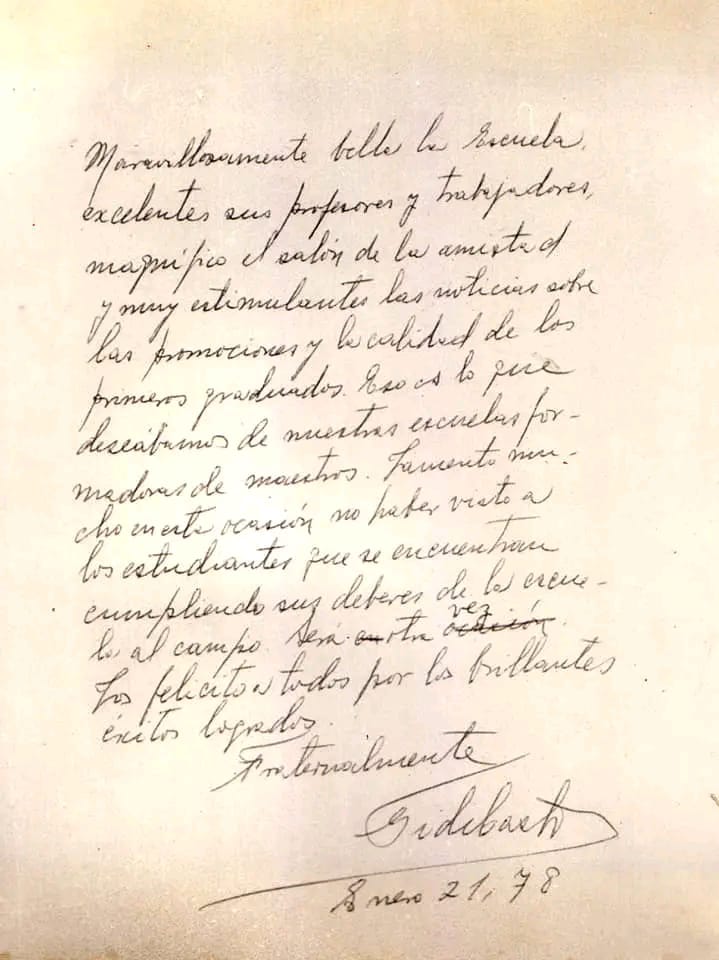 Maravillosamente bella la Escuela,
excelentes sus profesores y trabajadores,
magnífico el salón de la amistad
y muy estimulantes las noticias sobre
las promociones y la calidad de los
primeros graduados. Eso es lo que
deseábamos de nuestras escuelas for-
madoras de maestros. Lamento mu-
cho en esta ocasión no haber visto a
los estudiantes que se encuentran
cumpliendo sus deberes de la escue-
la al campo. Será en otra ocasión vez.
Los felicito a todos por los brillantes
éxitos logrados.
Fraternalmente
Fidel Castro
Enero 21, 78